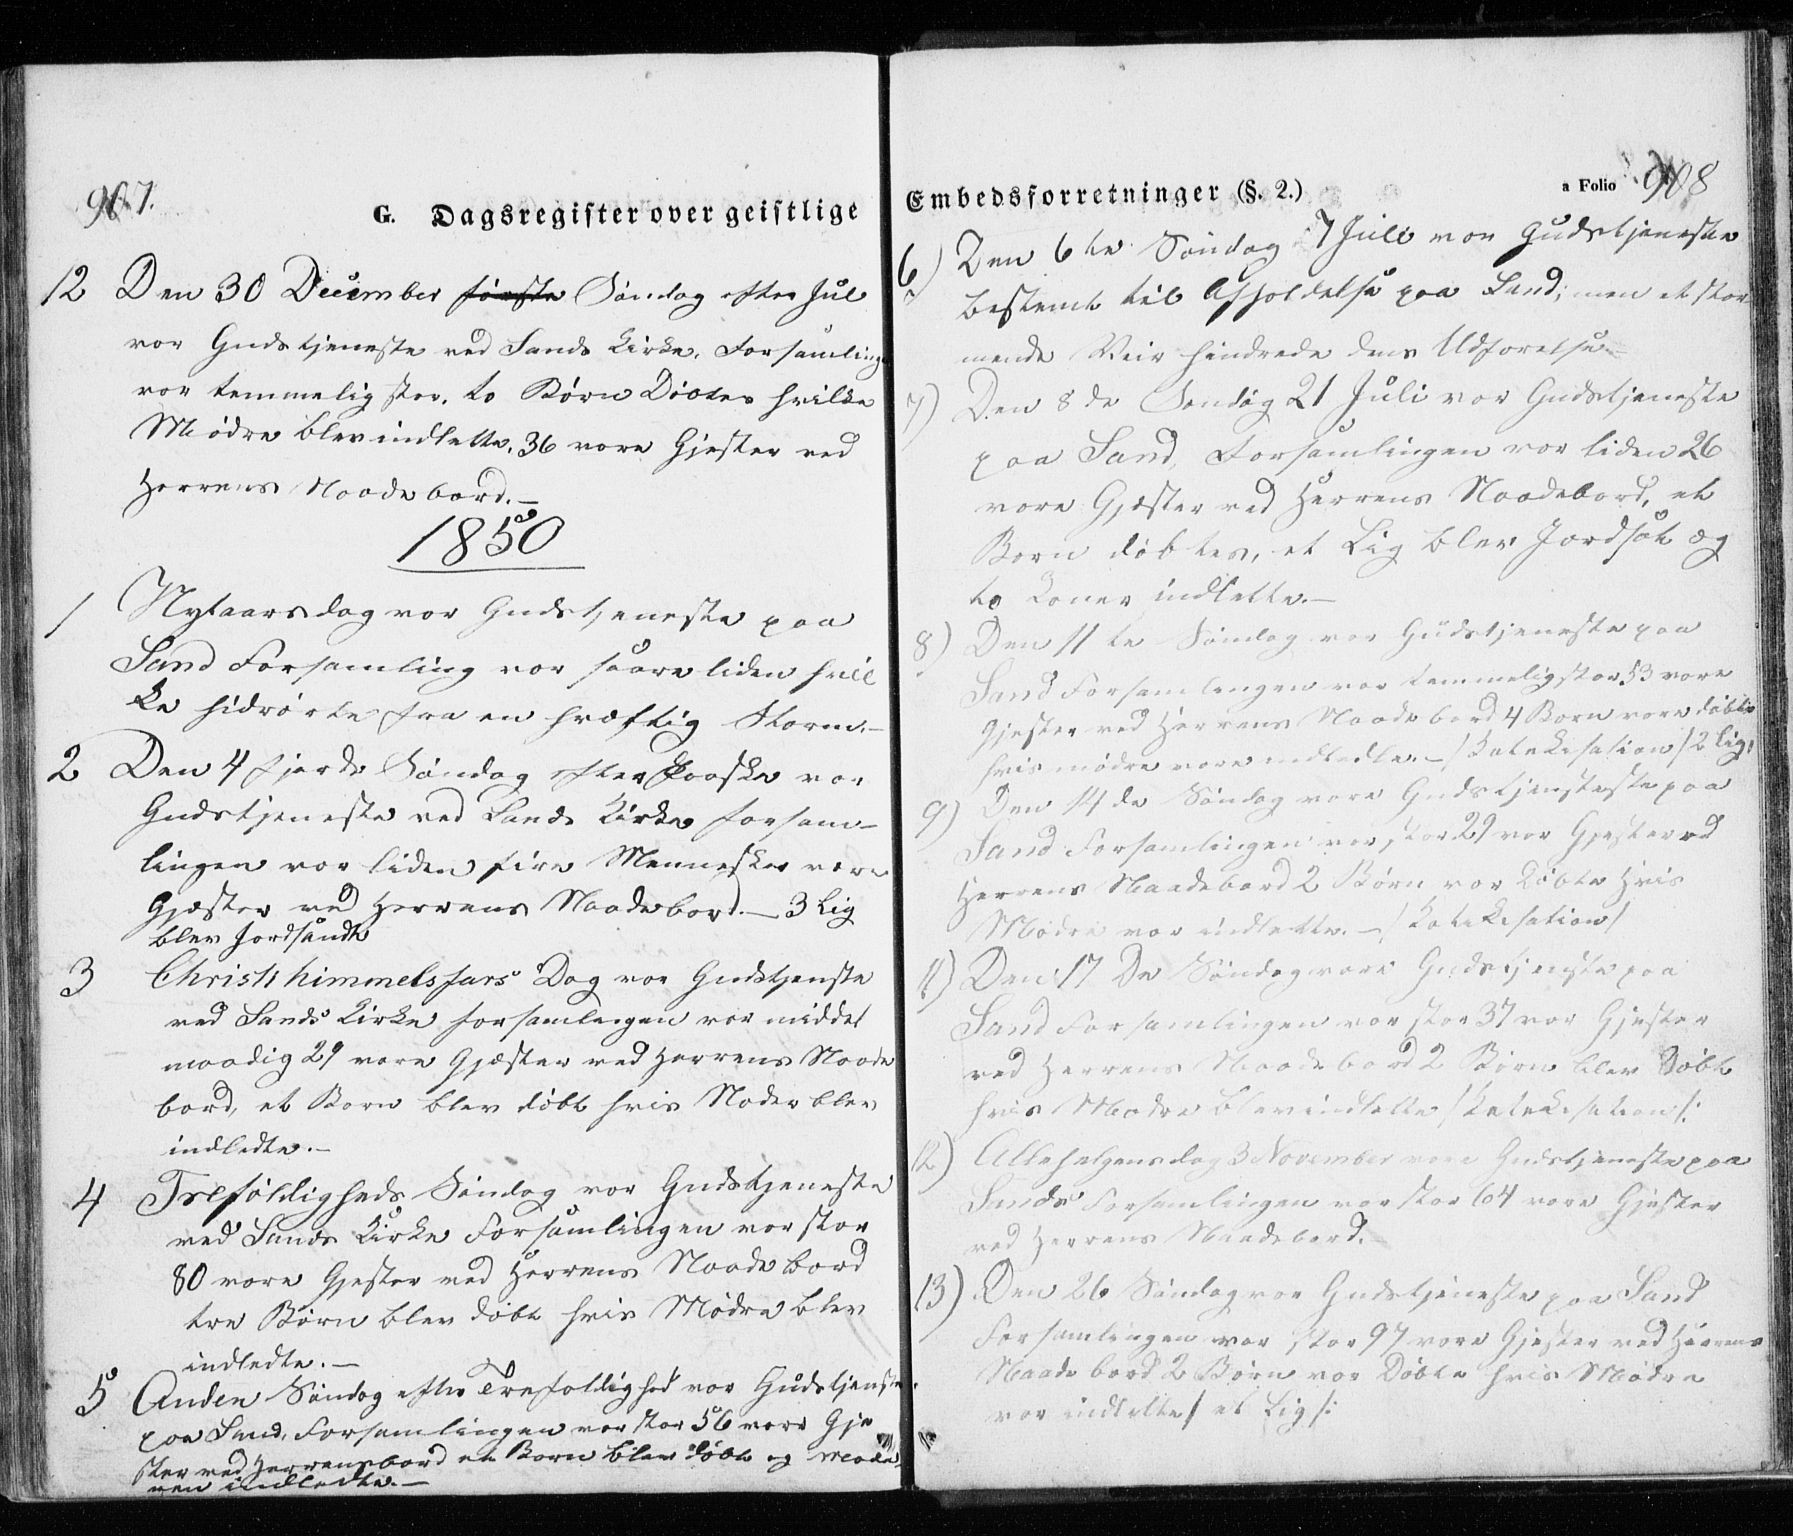 907.
G. Dagsregister over geistlige
12 Den 30 December første Søndag efter Jul
var Gudstjeneste ved Sands Kirke, Forsamlingen
var temmelig stor, to Børn Døbtes hvilke
Mødre blev indledte, 36 vare Gjester ved
Herrens Naadebord.—
1850
1 Nytaarsdag var Gudstjeneste paa
Sand Forsamling var saare liden hvil
ke hidrørte fra en hræftig Storm.—
2 Den 4 fjerde Søndag efter Paaske var
Gudstjeneste ved Sands Kirke forsam-
lingen var liden fire Mennesker vare
Gjæster ved Herrens Naadebord.— 3 Lig
blev Jordsandte
3 Christi himmelsfars Dag var Gudstjenste
ved Sands Kirke forsamlingen var middel
maadig 29 vare Gjæster ved Herrens Naade
bord, et Barn blev døbt hvis Moder blev
indledte.—
4 Trefoldigheds Søndag var Gudstjeneste
ved Sands Kirke Forsamlingen var stor
80 vare Gjester ved Herrens Naadebord
tre Børn blev døbt hvis Mødre blev
indledte.—
5 Anden Søndag efter Trefoldighed var Gudstjenste
paa Sand, Forsamlingen var stor 56 vare Gje
ster ved Herrensbord et Barn blev døbt og Mode-
ren indledte.—
Embedsforretninger (§. 2.)
a Folio 908
6) Den 6te Søndag 7 Juli var Gudstjeneste
bestemt til Afholdelse paa Sand; men et stor
mende Veir hindrede dens Udførelse.—
7) Den 8de Søndag 21 Juli var Gudstjeneste
paa Sand, Forsamlingen var liden 26
vare Gjæster ved Herrens Naadebord, et
Barn døbtes, et Lig blev Jordsat og
to Koner indledte.—
8) Den 11te Søndag var Gudstjeneste paa
Sand Forsamlingen var temmelig stor 53 vare
Gjester ved Herrens Naadebord 4 Børn vare døbte
hvis mødre vare indledte.— /Katekisation/ 2 Lig,
9) Den 14de Søndag vare Gudstjensteste paa
Sand Forsamlingen var stor 29 var Gjester ved
Herrens Naadebord 2 Børn var Døbte hvis
Mødre var indledte.— /Katekisation/
11) Den 17 De Søndag vare Gudstjenste paa
Sand Forsamlingen var stor 37 var Gjester
ved Herrens Naadebord 2 Børn blev Døbt
hvis Mødre blev indledte /Katekisation/:
12) Allehelgensdag 3 November vare Gudstjeneste paa
Sands Forsamlingen var stor 64 vare Gjester
ved Herrens Naadebord.—
13) Den 26 Søndag var Gudstjeneste paa Sand
Forsamlingen var stor 97 vare Gjester ved Herrens
Naadebord 2 Børn var Døbte hvis Mødre
var indledte/ et Lig/: